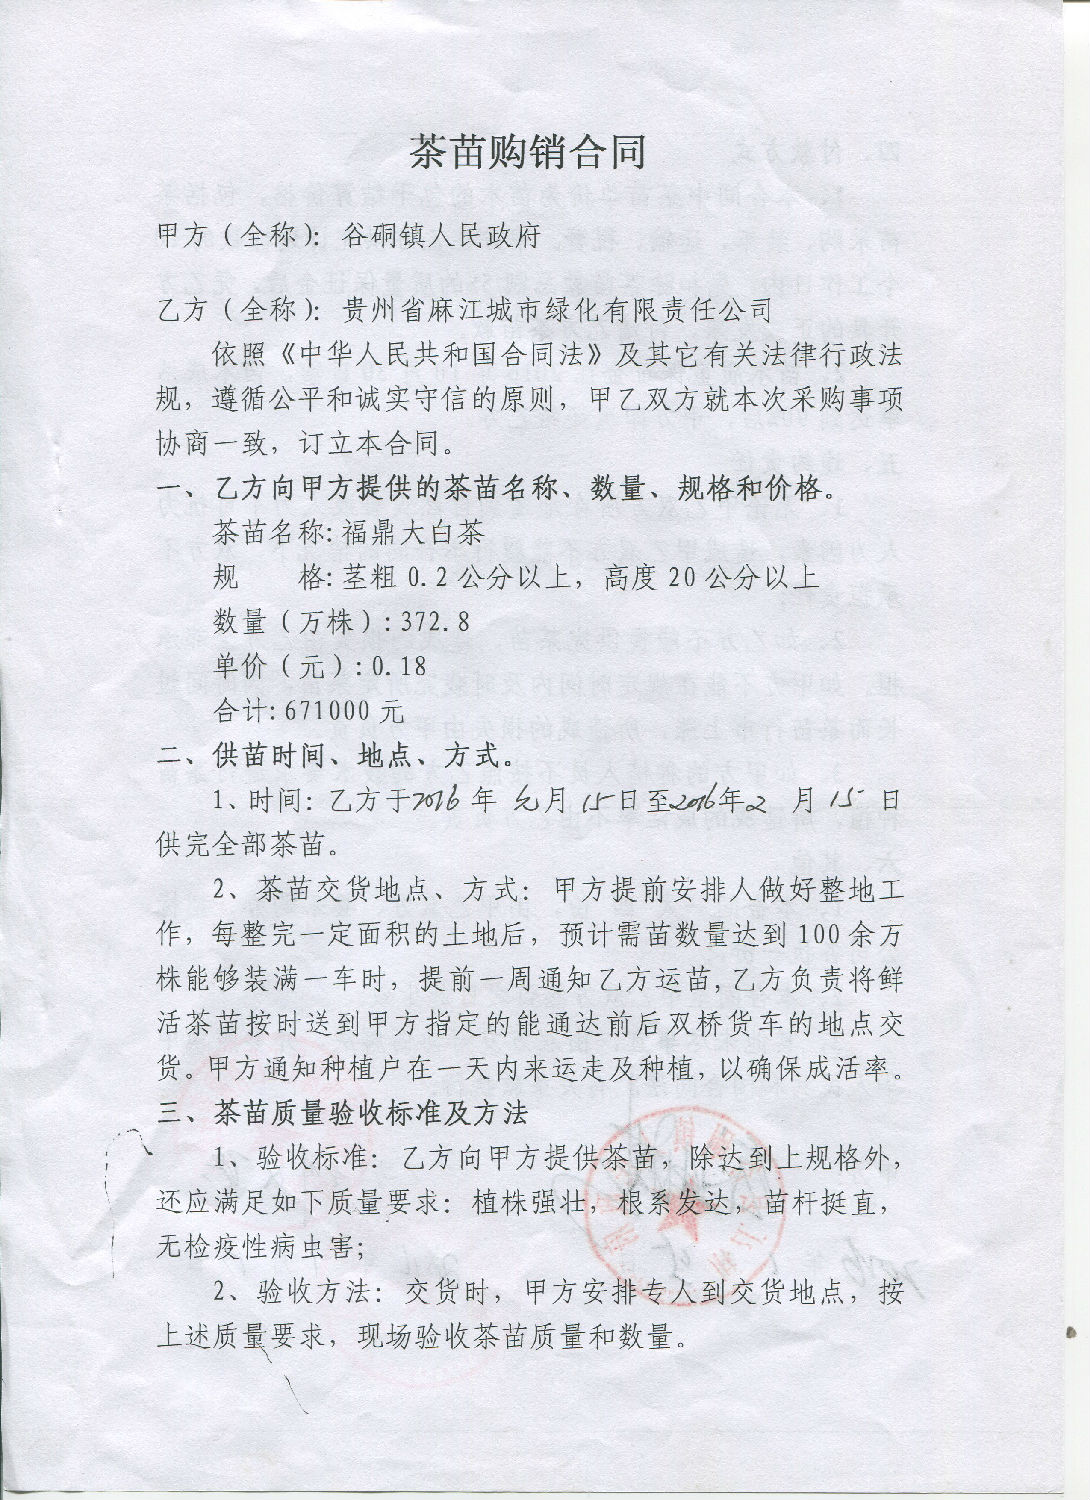 茶苗购销合同
甲方（全称）：谷硐镇人民政府
乙方（全称）：贵州省麻江城市绿化有限责任公司
依照《中华人民共和国合同法》及其它有关法律行政法
规，遵循公平和诚实守信的原则，甲乙双方就本次采购事项
协商一致，订立本合同。
一、乙方向甲方提供的茶苗名称、数量、规格和价格。
茶苗名称：福鼎大白茶
规　　格：茎粗 0.2 公分以上，高度 20 公分以上
数量（万株）：372.8
单价（元）：0.18
合计：671000 元
二、供苗时间、地点、方式。
1、时间：乙方于2016 年 元月 15日至2016年2 月 15 日
供完全部茶苗。
2、茶苗交货地点、方式：甲方提前安排人做好整地工
作，每整完一定面积的土地后，预计需苗数量达到 100 余万
株能够装满一车时，提前一周通知乙方运苗，乙方负责将鲜
活茶苗按时送到甲方指定的能通达前后双桥货车的地点交
货。甲方通知种植户在一天内来运走及种植，以确保成活率。
三、茶苗质量验收标准及方法
1、验收标准：乙方向甲方提供茶苗，除达到上规格外，
还应满足如下质量要求：植株强壮，根系发达，苗杆挺直，
无检疫性病虫害；
2、验收方法：交货时，甲方安排专人到交货地点，按
上述质量要求，现场验收茶苗质量和数量。